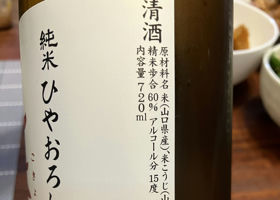 清酒
原材料名 米(山口県産)、米こうじ(山
精米歩合 60% アルコール分 15度
内容量 720ml
純米 ひやおろ